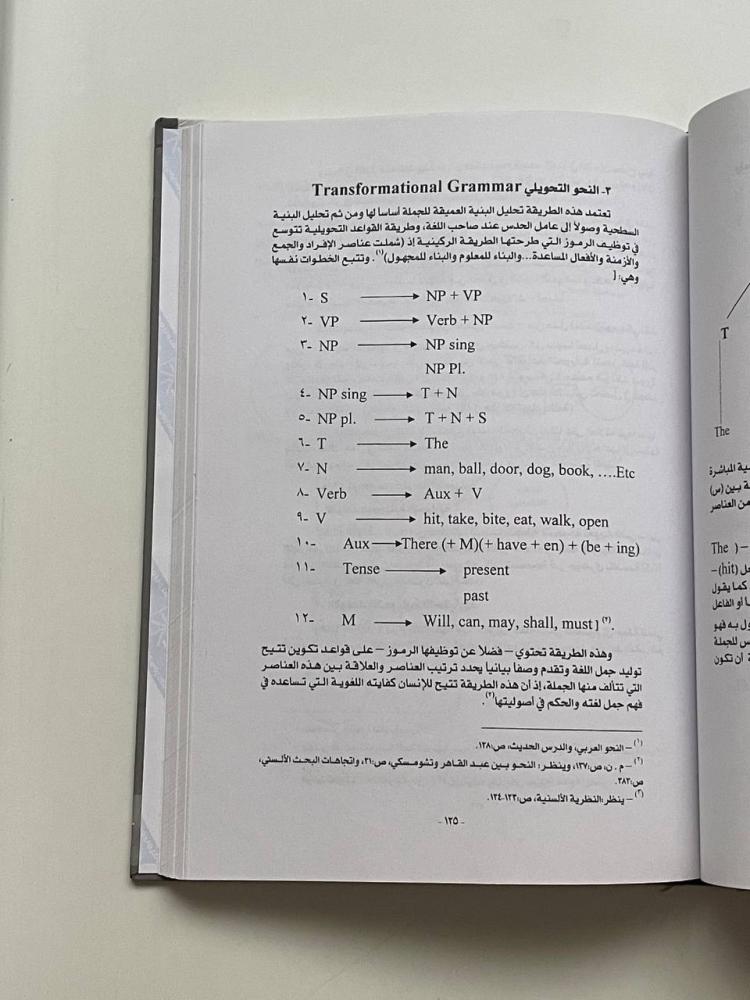 ٢- النحو التحويلي Transformational Grammar
تعتمد هذه الطريقة تحليل البنية العميقة للجملة أساسا لها ومن ثم تحليل البنية
السطحية وصولاً إلى عامل الحدس عند صاحب اللغة، وطريقة القواعد التحويلية تتوسع
في توظيف الرموز التي طرحتها الطريقة الركينية إذ (شملت عناصر الإفراد والجمع
والأزمنة والأفعال المساعدة...والبناء للمعلوم والبناء للمجهول)(١). وتتبع الخطوات نفسها
وهي: [
١- S ⟶ NP + VP
٢- VP ⟶ Verb + NP
٣- NP ⟶ NP sing
NP Pl.
٤- NP sing ⟶ T + N
٥- NP pl. ⟶ T + N + S
٦- T ⟶ The
٧- N ⟶ man, ball, door, dog, book, ....Etc
٨- Verb ⟶ Aux + V
٩- V ⟶ hit, take, bite, eat, walk, open
١٠- Aux ⟶ There (+ M)(+ have + en) + (be + ing)
١١- Tense ⟶ present
past
١٢- M ⟶ Will, can, may, shall, must ](٢).
وهذه الطريقة تحتوي – فضلاً عن توظيفها الرموز – على قواعد تكوين تتيح
توليد جمل اللغة وتقدم وصفاً بيانياً يحدد ترتيب العناصر والعلاقة بين هذه العناصر
التي تتألف منها الجملة، إذ أن هذه الطريقة تتيح للإنسان كفايته اللغوية التي تساعده في
فهم جمل لغته والحكم في أصوليتها(٣).
(١) – النحو العربي، والدرس الحديث، ص:١٣٨.
(٢) – م . ن، ص:١٣٧، وينظر: النحو بين عبد القاهر وتشومسكي، ص:٣١، واتجاهات البحث الألسني،
ص:٣٨٣.
(٣) – ينظر :النظرية الألسنية، ص:١٣٣-١٣٤.
- ١٢٥ -
T
The
ية المباشرة
ة بين (س)
من العناصر
The ) –
عل (hit)–
كما يقول
ا أو الفاعل
ول به فهو
س للجملة
ة أن تكون